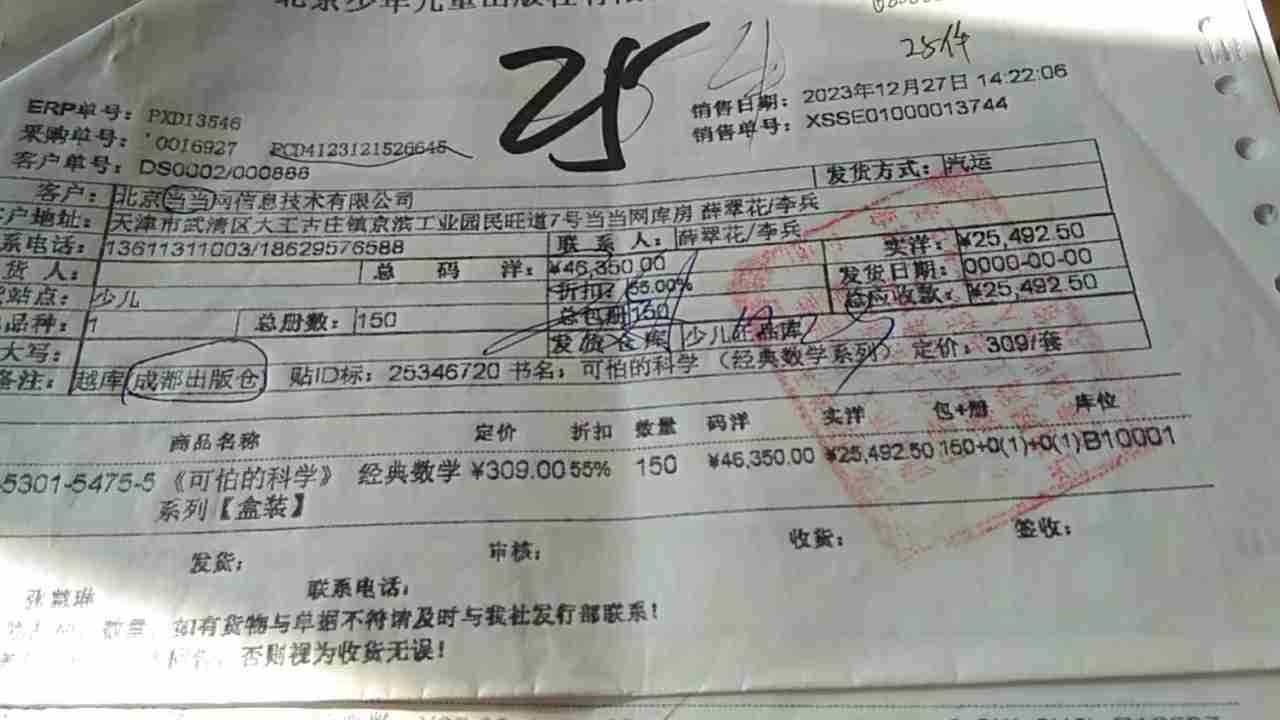 北京少年儿童出版社有限
25
25件
ERP单号: PXD13546
销售日期: 2023年12月27日 14:22:06
采购单号: '0016927 PCD4123121526645
销售单号: XSSE01000013744
客户单号: DS0002/000886
客户: 北京当当网信息技术有限公司 发货方式: 汽运
客户地址: 天津市武清区大王古庄镇京滨工业园民旺道7号当当网库房 薛翠花/李兵
系电话: 13611311003/18629576588 联系人: 薛翠花/李兵 实洋: ¥25,492.50
货人: 总码洋: ¥46,350.00 发货日期: 0000-00-00
站点: 少儿 折扣: 55.00% 总应收款: ¥25,492.50
品种: 1 总册数: 150 总包册 150
大写: 发货仓库 少儿正品库
备注: 越库 成都出版仓 贴ID标: 25346720 书名: 可怕的科学 (经典数学系列) 定价: 309/套
商品名称 定价 折扣 数量 码洋 实洋 包+册 库位
5301-5475-5 《可怕的科学》 经典数学 ¥309.00 55% 150 ¥46,350.00 ¥25,492.50 150+0(1)+0(1) B10001
系列【盒装】
发货: 审核: 收货: 签收:
联系电话:
数量, 如有货物与单据不符请及时与我社发行部联系!
否则视为收货无误!